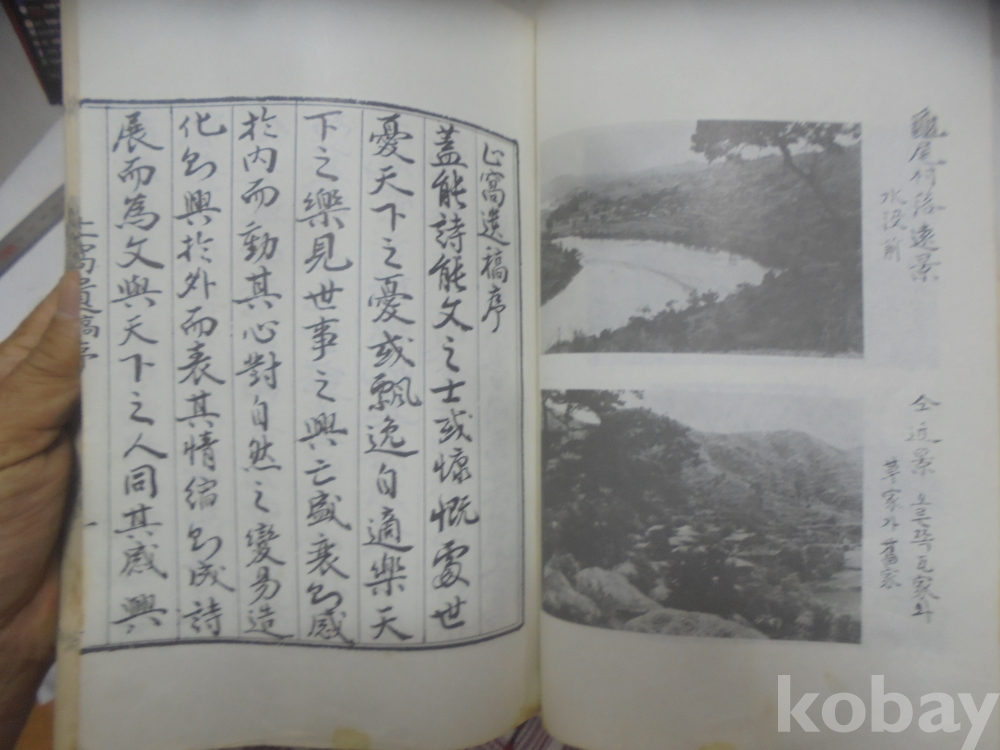 龜尾村落遠景
水沒前
仝近景 오른쪽 瓦家와
草家가 舊家
止窩遺稿序
蓋能詩能文之士或慷慨處世
憂天下之憂或飄逸自適樂天
下之樂見世事之興亡盛衰則感
於內而動其心對自然之變易造
化則興於外而表其情縮則成詩
展而為文與天下之人同其感興
止窩遺稿序 一
kobay